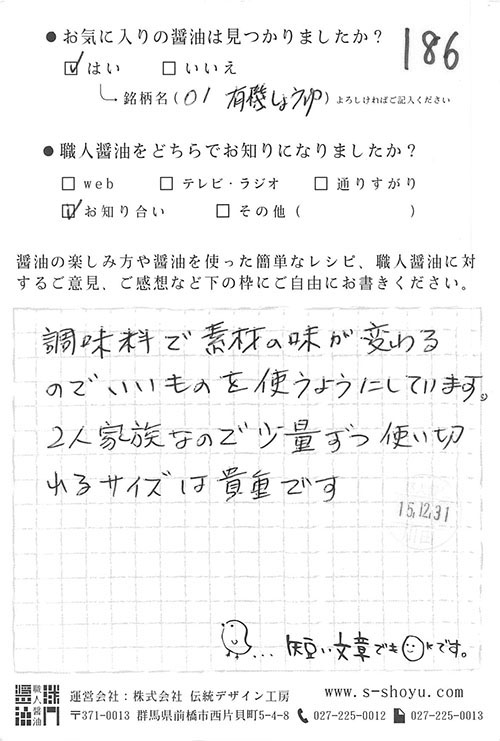 ● お気に入りの醤油は見つかりましたか？
186
☑ はい □ いいえ
銘柄名（01 有機しょうゆ）よろしければご記入ください
● 職人醤油をどちらでお知りになりましたか？
□ web □ テレビ・ラジオ □ 通りすがり
☑ お知り合い □ その他（ ）
醤油の楽しみ方や醤油を使った簡単なレシピ、職人醤油に対
するご意見、ご感想など下の枠にご自由にお書きください。
調味料で素材の味が変わる
のでいいものを使うようにしています。
2人家族なので少量ずつ使い切
れるサイズは貴重です
15.12.31
... 短い文章でもOKです。
職人醤油
運営会社：株式会社 伝統デザイン工房
www.s-shoyu.com
〒371-0013 群馬県前橋市西片貝町5-4-8 027-225-0012 027-225-0013